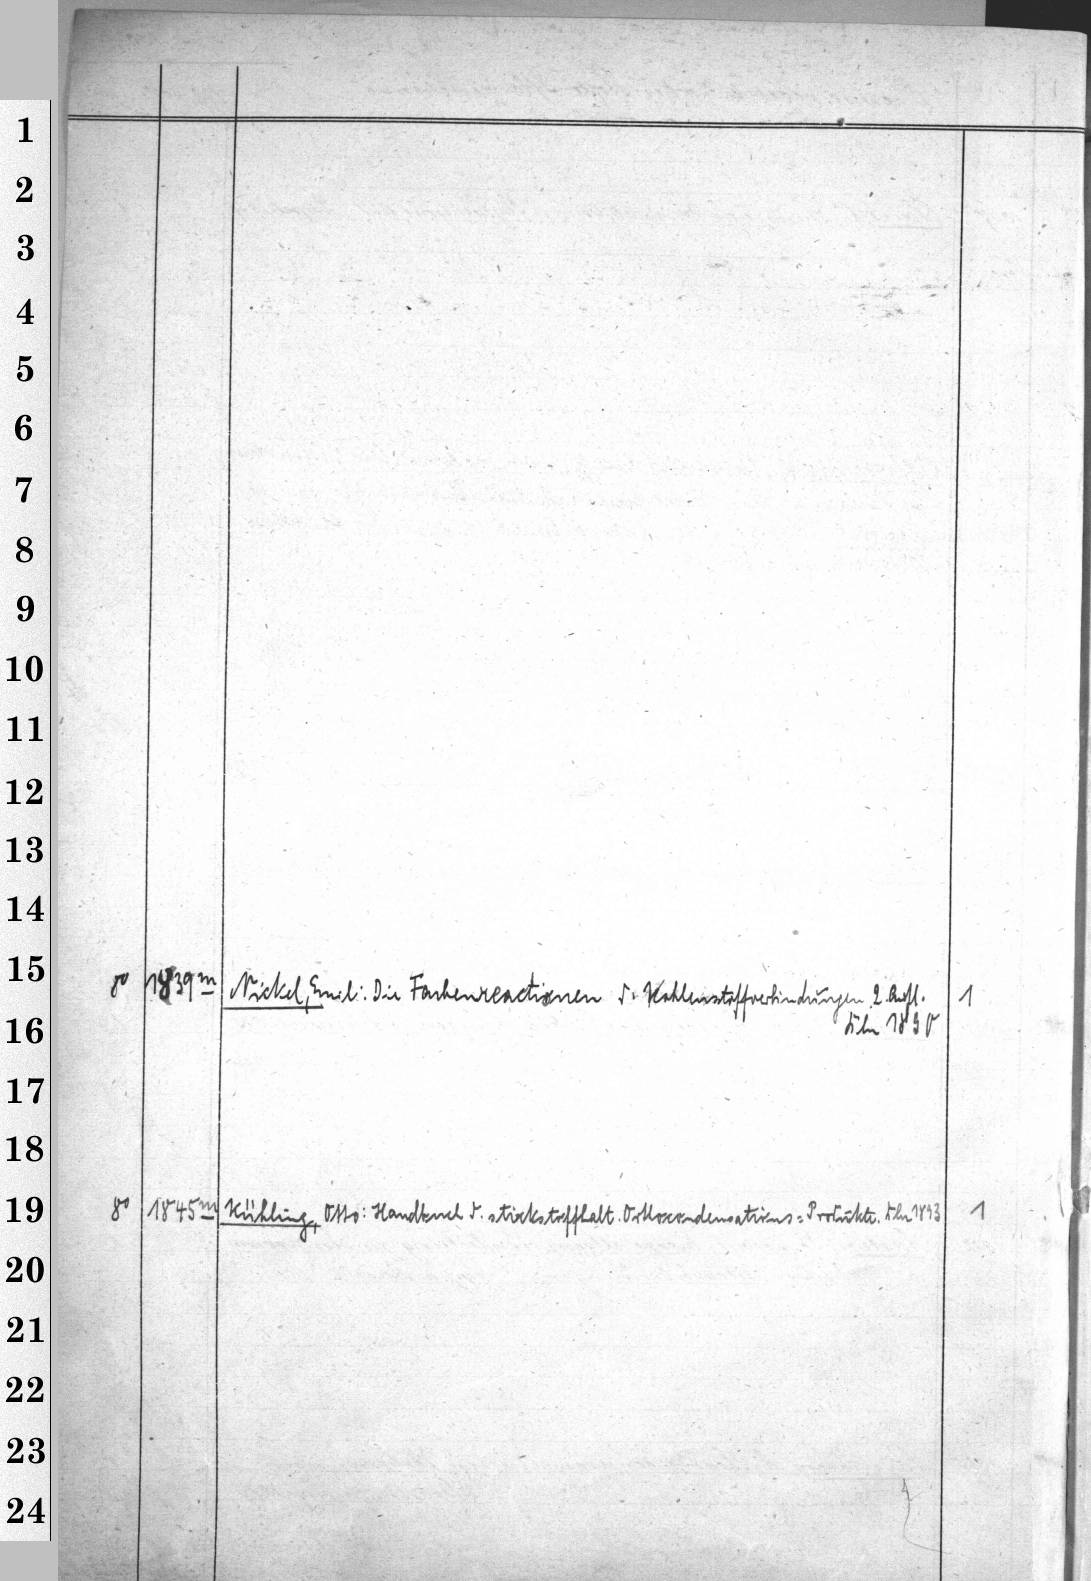 1
2
3
4
5
6
7
8
9
10
11
12
13
14
15
8° 1839m Nickel, Emil: Die Farbenreactionen d. Kohlenstoffverbindungen 2. Aufl. 1
16
Bln 1890
17
18
19
8° 1845m Kühling, Otto: Handbuch d. stickstoffhalt. Orthocondensations-Produkte. Bln 1893 1
20
21
22
23
24